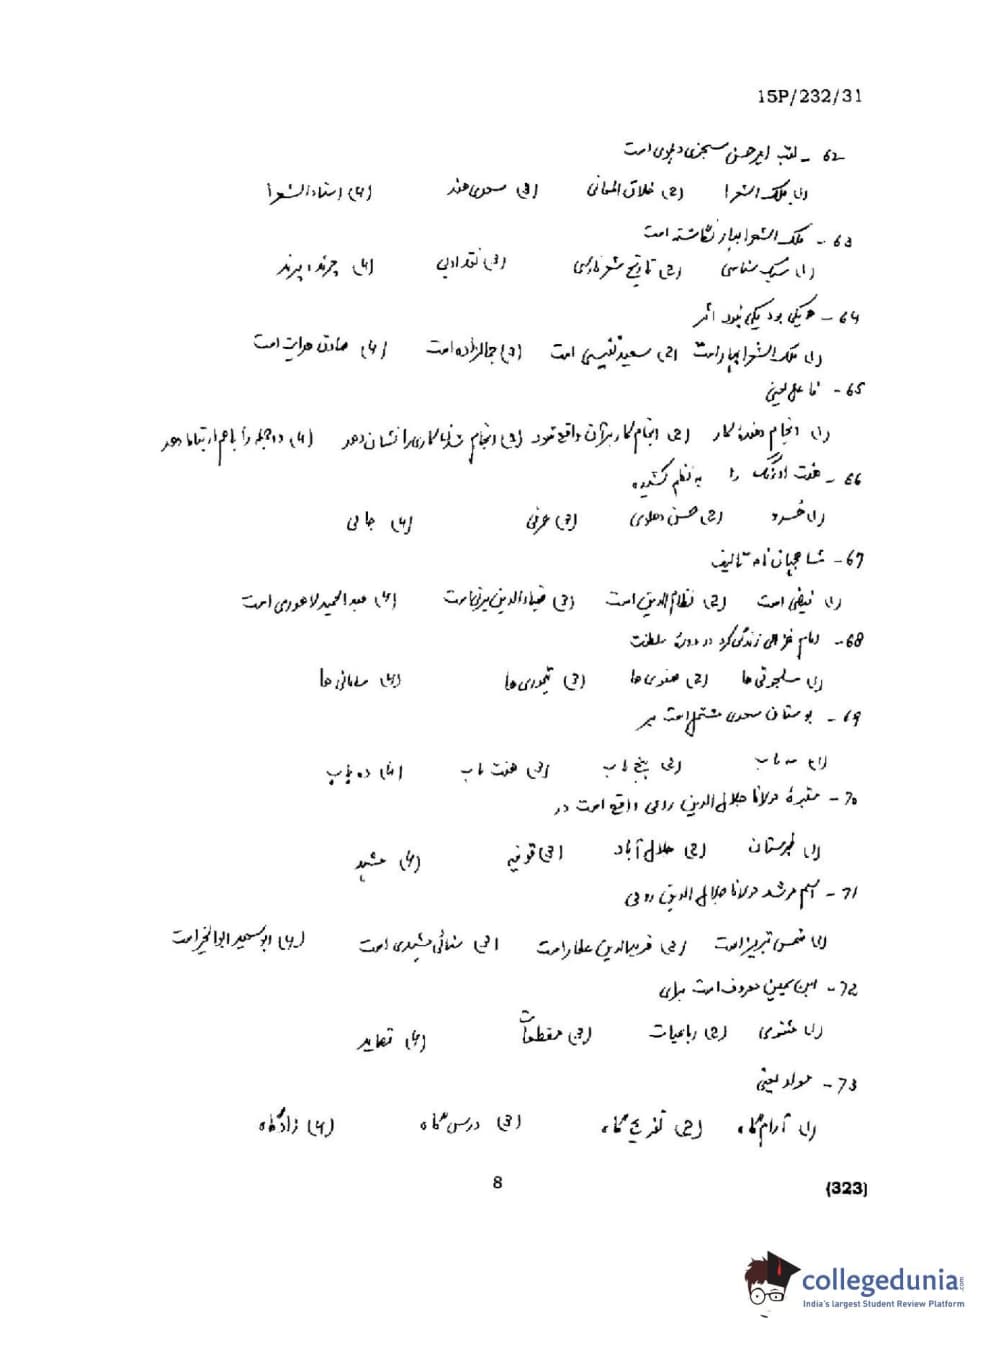 15P/232/31
62 - لقب امیر حسن سجزی دهلوی است
(1) ملک الشعرا (2) خلاق المعانی (3) سعدی هند (4) استاد الشعرا
63 - ملک الشعرا بهار نگاشته است
(1) سبک شناسی (2) تاریخ شعر فارسی (3) نقد ادبی (4) چرند و پرند
64 - یکی بود یکی نبود اثر
(1) ملک الشعرا بهار است (2) سعید نفیسی است (3) جمالزاده است (4) صادق هدایت است
65 - فاعل یعنی
(1) انجام دهندهٔ کار (2) انجام کار بر آن واقع شود (3) انجام کاری را نشان دهد (4) دو جمله را باهم ارتباط دهد
66 - هفت اورنگ را به نظم کشیده
(1) خسرو (2) حسن دهلوی (3) عرفی (4) جامی
67 - شاهجهان نامه تالیف
(1) فیضی است (2) نظام الدین است (3) ضیاءالدین برنی است (4) عبدالحمید لاهوری است
68 - امام غزالی زندگی کرد در دورهٔ سلطنت
(1) سلجوقی ها (2) صفوی ها (3) تیموری ها (4) سامانی ها
69 - بوستان سعدی مشتمل است بر
(1) سه باب (2) پنج باب (3) هفت باب (4) ده باب
70 - مقبرهٔ مولانا جلال الدین رومی واقع است در
(1) طبرستان (2) جلال آباد (3) قونیه (4) مشهد
71 - اسم مرشد مولانا جلال الدین رومی
(1) شمس تبریز است (2) فریدالدین عطار است (3) سنائی است (4) ابوسعید ابوالخیر است
72 - ابن یمین معروف است برای
(1) مثنوی (2) رباعیات (3) مقطعات (4) قصاید
73 - مولد یعنی
(1) آرام گاه (2) تفریح گاه (3) درس گاه (4) زادگاه
8
(323)
collegedunia.com
India's largest Student Review Platform